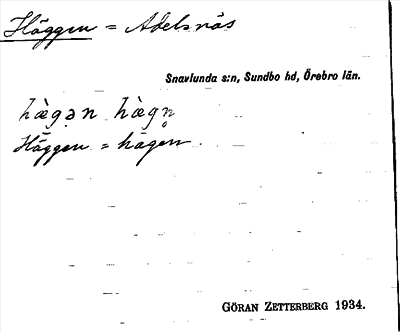 Häggen = Adelsnäs
Snavlunda s:n, Sundbo hd, Örebro län.
hàgən hàgn̥
Häggen = hägen
GÖRAN ZETTERBERG 1934.